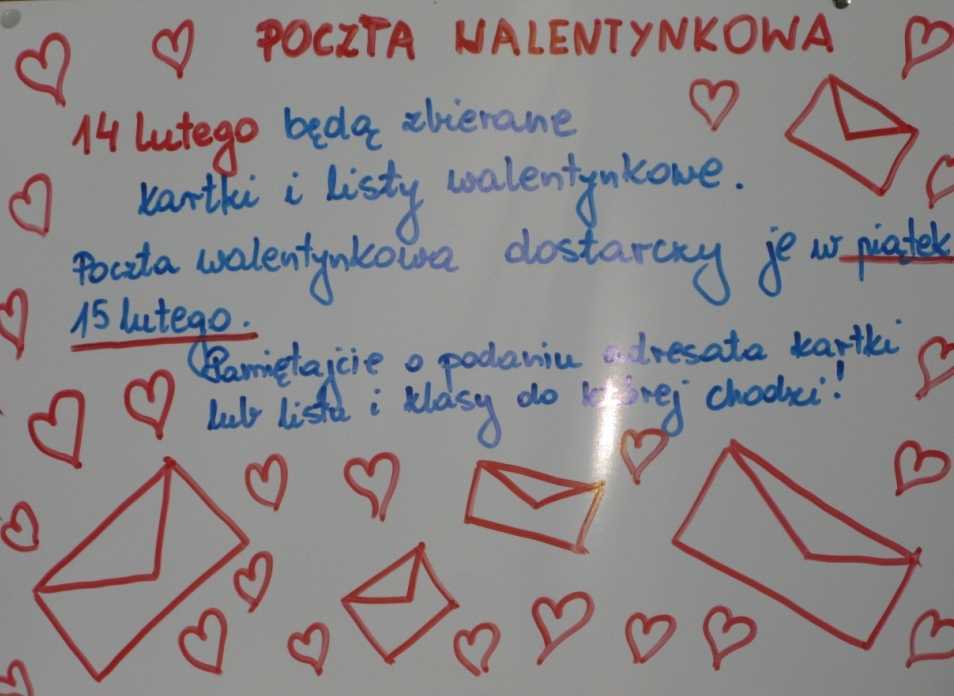 POCZTA WALENTYNKOWA
14 lutego będą zbierane
kartki i listy walentynkowe.
Poczta walentynkowa dostarczy je w piątek
15 lutego.
Pamiętajcie o podaniu adresata kartki
lub listu i klasy do której chodzi!